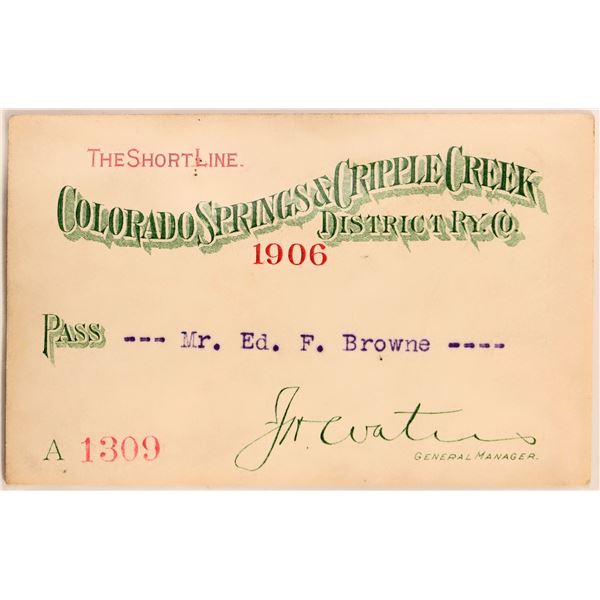 THE SHORT LINE.
COLORADO SPRINGS & CRIPPLE CREEK
DISTRICT RY. CO.
1906
PASS --- Mr. Ed. F. Browne ----
A 1309
GENERAL MANAGER.